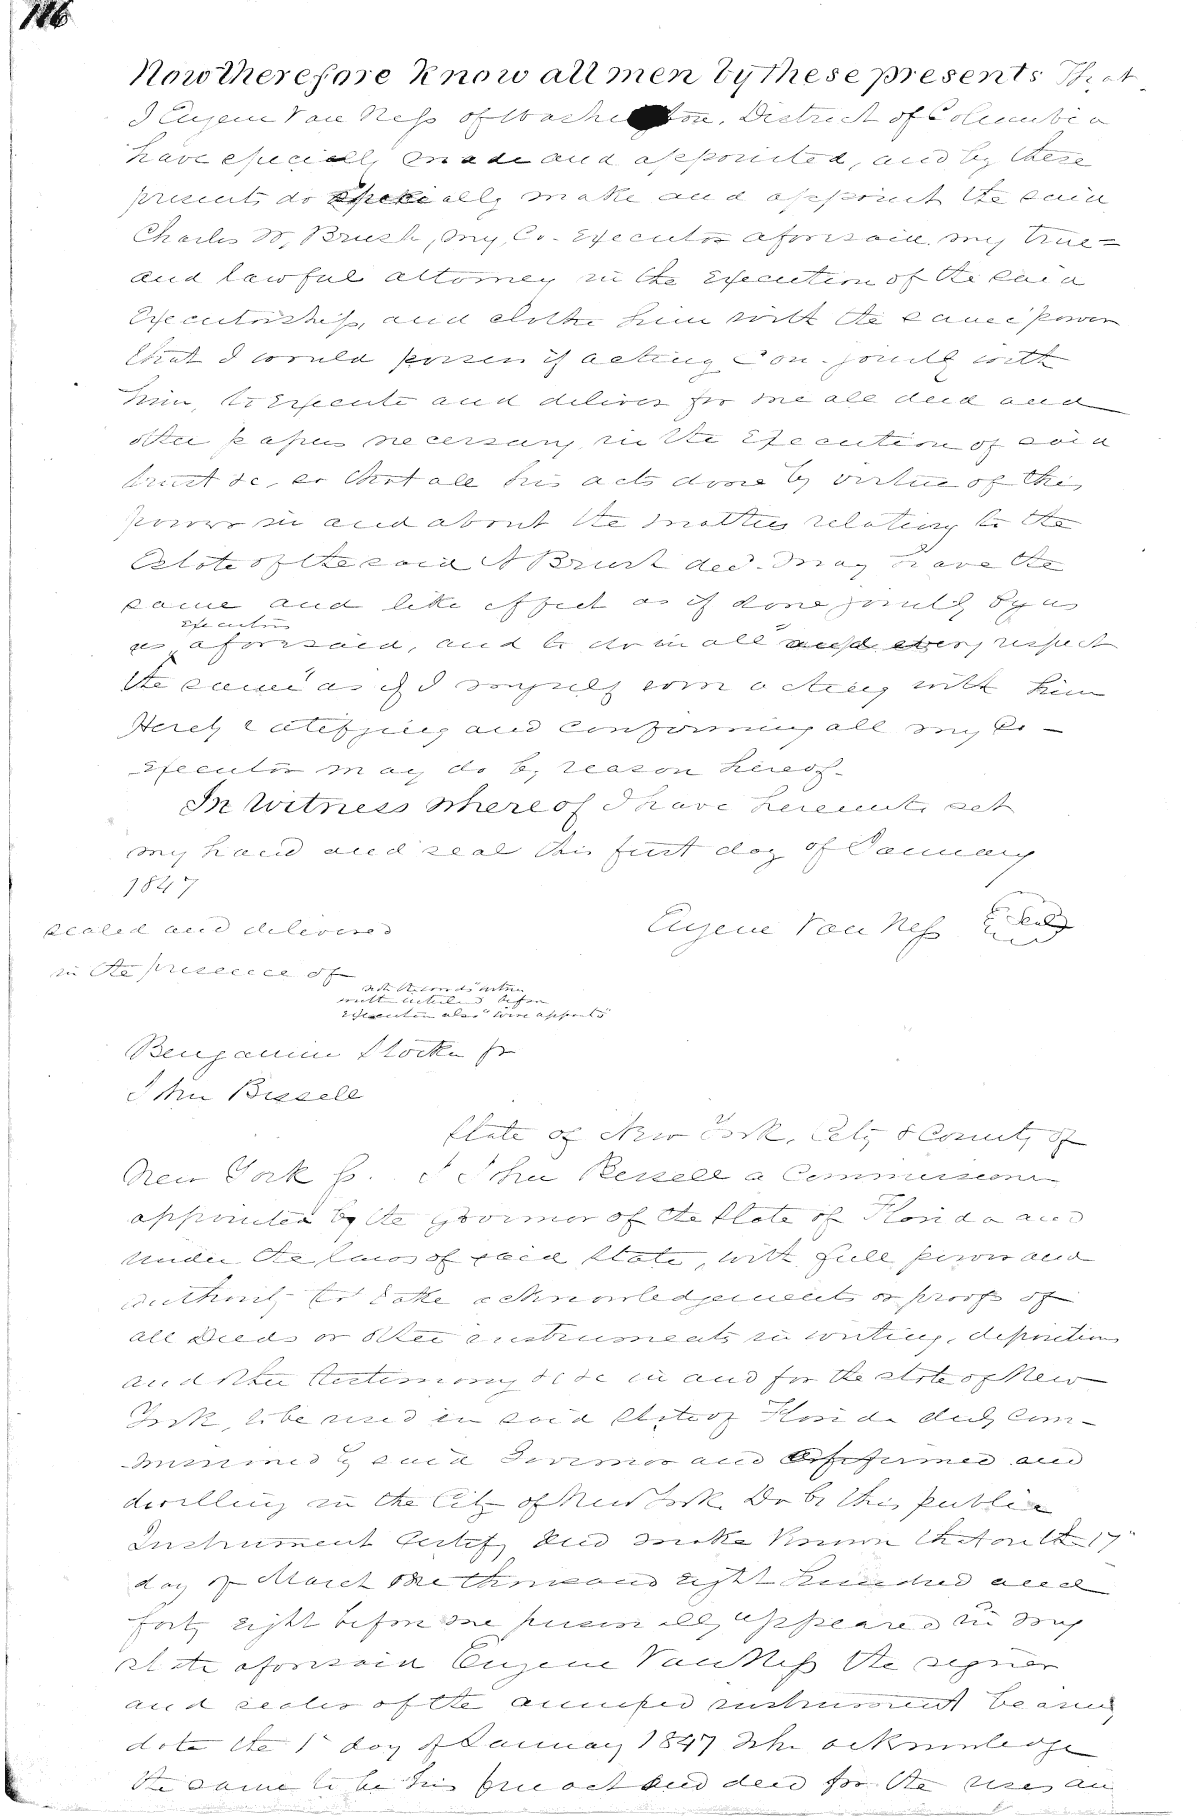 116
Now therefore Know all men by these presents That
I Eugene Van Ness of Washington, District of Columbia
have specially made and appointed, and by these
presents do specially make and appoint the said
Charles W, Brush, my Co-Executor aforesaid my true
and lawful attorney in the Execution of the said
Executorship, and clothe him with the same power
that I would possess if acting Con-jointly with
him, to Execute and deliver for me all deed and
other papers necessary in the Execution of said
trust &c, so that all his acts done by virtue of this
power in and about the matters relating to the
Estate of the said N Brush decd. may have the
same and like effect as if done jointly by us
Executors
as aforesaid, and to do in all and every respect
the same as if I myself were acting with him
Herely ratifying and confirming all my Co-
Executor may do by reason hereof.
In Witness whereof I have hereunto set
my hand and seal this first day of January
1847
Eugene Van Ness Seal
sealed and delivered
in the presence of
note the words
before
Executor also "were
Benjamin Stocker jr
John Bissell
State of New York, City & County of
New York Ss. I John Bissell a Commissioner
appointed by the Governor of the State of Florida and
under the laws of said State, with full power and
authority to take acknowledgements or proofs of
all Deeds or other instruments in writing, depositions
and other testimony &c &c in and for the state of New
York, to be used in said State of Florida duly com-
missioned by said Governor and affirmed and
dwelling in the City of New York Do by this public
Instrument Certify and make Known that on the 17"
day of March One thousand Eight hundred and
forty Eight before me personally appeared in my
state aforesaid Eugene Van Ness the signer
and sealer of the annexed instrument bearing
date the 1st day of January 1847 who acknowledge
the same to be his free act and deed for the uses an